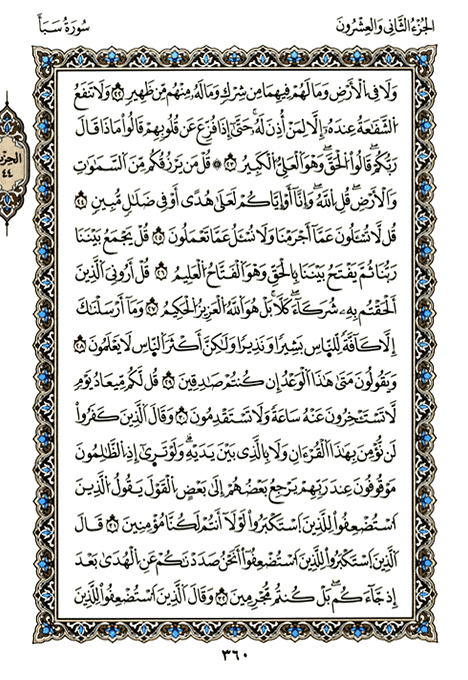 الجُزْءُ الثَّانِي وَالعِشْرُونَ
سُورَةُ سَبَأ
وَلَا فِي ٱلْأَرْضِ وَمَا لَهُمْ فِيهِمَا مِن شِرْكٍ وَمَا لَهُۥ مِنْهُم مِّن ظَهِيرٍ ٢٢ وَلَا تَنفَعُ
ٱلشَّفَٰعَةُ عِندَهُۥٓ إِلَّا لِمَنْ أَذِنَ لَهُۥ ۚ حَتَّىٰٓ إِذَا فُزِّعَ عَن قُلُوبِهِمْ قَالُوا۟ مَاذَا قَالَ
رَبُّكُمْ ۖ قَالُوا۟ ٱلْحَقَّ ۖ وَهُوَ ٱلْعَلِىُّ ٱلْكَبِيرُ ٢٣ ۞ قُلْ مَن يَرْزُقُكُم مِّنَ ٱلسَّمَٰوَٰتِ
وَٱلْأَرْضِ ۖ قُلِ ٱللَّهُ ۖ وَإِنَّآ أَوْ إِيَّاكُمْ لَعَلَىٰ هُدًى أَوْ فِى ضَلَٰلٍ مُّبِينٍ ٢٤
قُل لَّا تُسْـَٔلُونَ عَمَّآ أَجْرَمْنَا وَلَا نُسْـَٔلُ عَمَّا تَعْمَلُونَ ٢٥ قُلْ يَجْمَعُ بَيْنَنَا
رَبُّنَا ثُمَّ يَفْتَحُ بَيْنَنَا بِٱلْحَقِّ وَهُوَ ٱلْفَتَّاحُ ٱلْعَلِيمُ ٢٦ قُلْ أَرُونِىَ ٱلَّذِينَ
أَلْحَقْتُم بِهِۦ شُرَكَآءَ ۖ كَلَّا ۚ بَلْ هُوَ ٱللَّهُ ٱلْعَزِيزُ ٱلْحَكِيمُ ٢٧ وَمَآ أَرْسَلْنَٰكَ
إِلَّا كَآفَّةً لِّلنَّاسِ بَشِيرًا وَنَذِيرًا وَلَٰكِنَّ أَكْثَرَ ٱلنَّاسِ لَا يَعْلَمُونَ ٢٨
وَيَقُولُونَ مَتَىٰ هَٰذَا ٱلْوَعْدُ إِن كُنتُمْ صَٰدِقِينَ ٢٩ قُل لَّكُم مِّيعَادُ يَوْمٍ
لَّا تَسْتَـْٔخِرُونَ عَنْهُ سَاعَةً وَلَا تَسْتَقْدِمُونَ ٣٠ وَقَالَ ٱلَّذِينَ كَفَرُوا۟
لَن نُّؤْمِنَ بِهَٰذَا ٱلْقُرْءَانِ وَلَا بِٱلَّذِى بَيْنَ يَدَيْهِ ۗ وَلَوْ تَرَىٰٓ إِذِ ٱلظَّٰلِمُونَ
مَوْقُوفُونَ عِندَ رَبِّهِمْ يَرْجِعُ بَعْضُهُمْ إِلَىٰ بَعْضٍ ٱلْقَوْلَ يَقُولُ ٱلَّذِينَ
ٱسْتُضْعِفُوا۟ لِلَّذِينَ ٱسْتَكْبَرُوا۟ لَوْلَآ أَنتُمْ لَكُنَّا مُؤْمِنِينَ ٣١ قَالَ
ٱلَّذِينَ ٱسْتَكْبَرُوا۟ لِلَّذِينَ ٱسْتُضْعِفُوٓا۟ أَنَحْنُ صَدَدْنَٰكُمْ عَنِ ٱلْهُدَىٰ بَعْدَ
إِذْ جَآءَكُم ۖ بَلْ كُنتُم مُّجْرِمِينَ ٣٢ وَقَالَ ٱلَّذِينَ ٱسْتُضْعِفُوا۟ لِلَّذِينَ
٣٦٠
٤٤